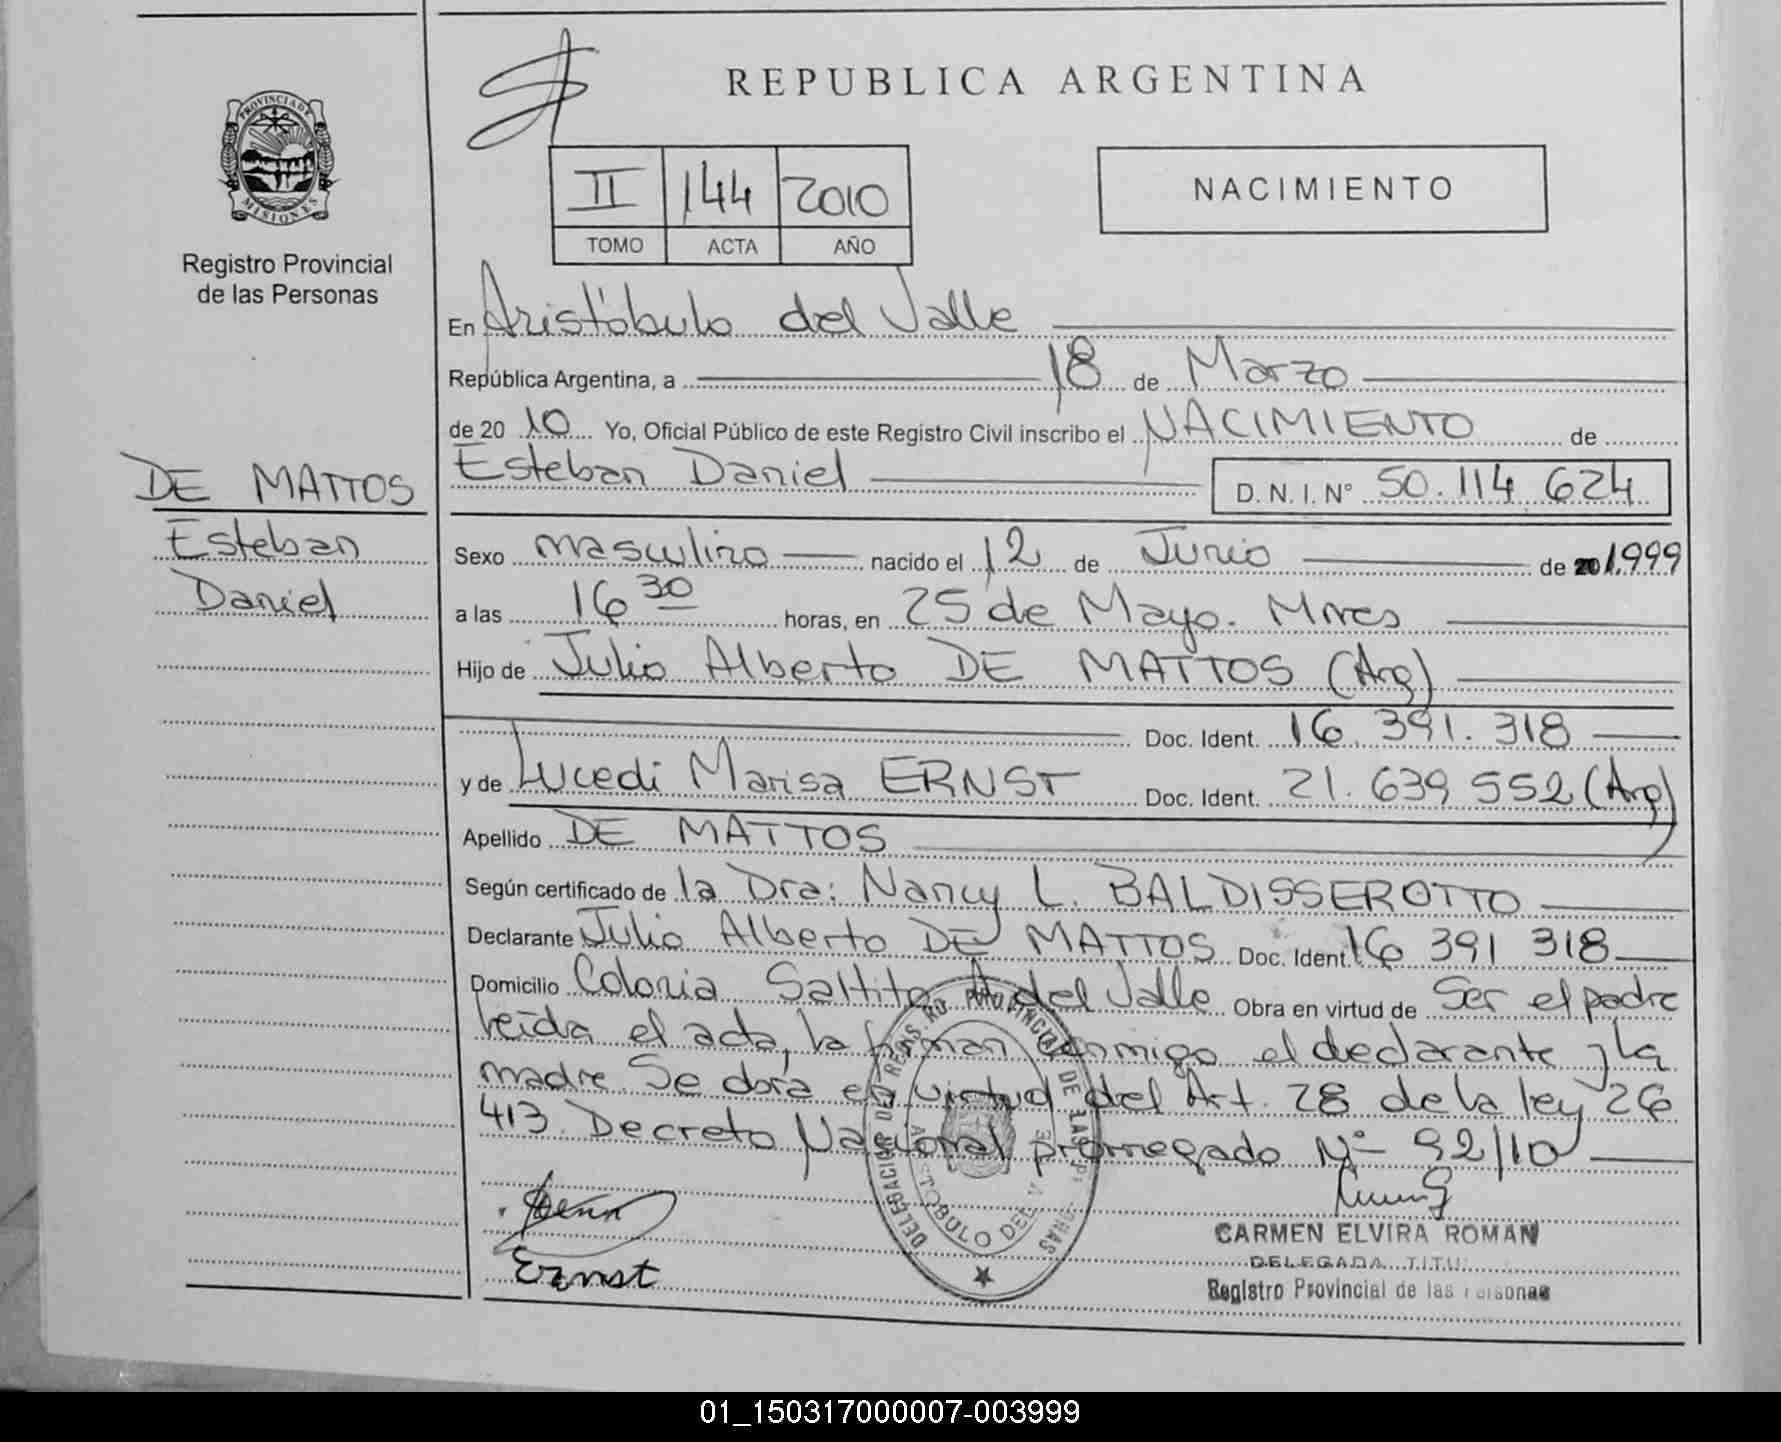 PROVINCIA DE
MISIONES
Registro Provincial
de las Personas
DE MATTOS
Esteban
Daniel
REPUBLICA ARGENTINA
II 144 2010
TOMO ACTA AÑO
NACIMIENTO
En Aristóbulo del Valle
República Argentina, a 18 de Marzo
de 20 10 Yo, Oficial Público de este Registro Civil inscribo el NACIMIENTO de
Esteban Daniel D.N.I. Nº 50.114 624
Sexo masculino nacido el 12 de Junio de 1.999
a las 16 30 horas, en 25 de Mayo. Mnes
Hijo de Julio Alberto DE MATTOS (Arg)
Doc. Ident. 16.391.318
y de Lucedi Marisa ERNST Doc. Ident. 21.639 552 (Arg)
Apellido DE MATTOS
Según certificado de la Dra: Nancy L. BALDISSEROTTO
Declarante Julio Alberto DE MATTOS Doc. Ident. 16 391 318
Domicilio Colonia Saltito A del Valle Obra en virtud de Ser el padre
leída el acta, la firman conmigo el declarante y la
madre Se dora en virtud del Art. 28 de la ley 26
413. Decreto Nacional prorrogado Nº 92/10
Ernst
CARMEN ELVIRA ROMAN
DELEGADA TITU
Registro Provincial de las Personas
01_150317000007-003999